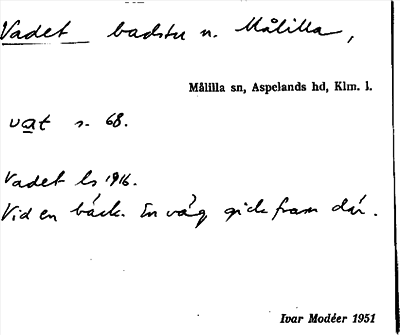 Vadet badstu n. Målilla,
Målilla sn, Aspelands hd, Klm. l.
vat s. 68.
Vadet ls 1916.
Vid en bäck. En väg gick fram där.
Ivar Modéer 1951